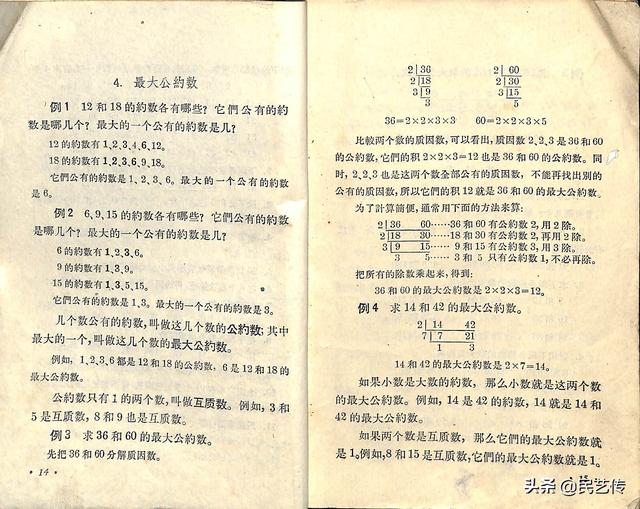 4. 最大公約数
例1 12 和 18 的約数各有哪些？它們公有的約
数是哪几个？最大的一个公有的約数是几？
12 的約数有 1、2、3、4、6、12。
18 的約数有 1、2、3、6、9、18。
它們公有的約数是 1、2、3、6。最大的一个公有的約数
是 6。
例2 6、9、15 的約数各有哪些？它們公有的約数
是哪几个？最大的一个公有的約数是几？
6 的約数有 1、2、3、6。
9 的約数有 1、3、9。
15 的約数有 1、3、5、15。
它們公有的約数是 1、3。最大的一个公有的約数是 3。
几个数公有的約数，叫做这几个数的公約数；其中
最大的一个，叫做这几个数的最大公約数。
例如，1、2、3、6 都是 12 和 18 的公約数，6 是 12 和 18 的
最大公約数。
公約数只有 1 的两个数，叫做互质数。例如，3 和
5 是互质数，8 和 9 也是互质数。
例3 求 36 和 60 的最大公約数。
先把 36 和 60 分解质因数。
· 14 ·
2 36 2 60
2 18 2 30
3 9 3 15
3 5
36=2×2×3×3 60=2×2×3×5
比較两个数的质因数，可以看出，质因数 2、2、3 是 36 和 60
的公約数，它們的积 2×2×3=12 也是 36 和 60 的公約数。同
时，2、2、3 也是这两个数全部公有的质因数，不能再找出別的
公有的质因数，所以它們的积 12 就是 36 和 60 的最大公約数。
为了計算簡便，通常用下面的方法来算：
2 36 60……36 和 60 有公約数 2，用 2 除。
2 18 30……18 和 30 有公約数 2，再用 2 除。
3 9 15……9 和 15 有公約数 3，用 3 除。
3 5……3 和 5 只有公約数 1，不必再除。
把所有的除数乘起来，得到：
36 和 60 的最大公約数是 2×2×3=12。
例4 求 14 和 42 的最大公約数。
2 14 42
7 7 21
1 3
14 和 42 的最大公約数是 2×7=14。
如果小数是大数的約数，那么小数就是这两个数
的最大公約数。例如，14 是 42 的約数，14 就是 14 和
42 的最大公約数。
如果两个数是互质数，那么它們的最大公約数就
是 1。例如，8 和 15 是互质数，它們的最大公約数就是 1。
头条 @民艺传